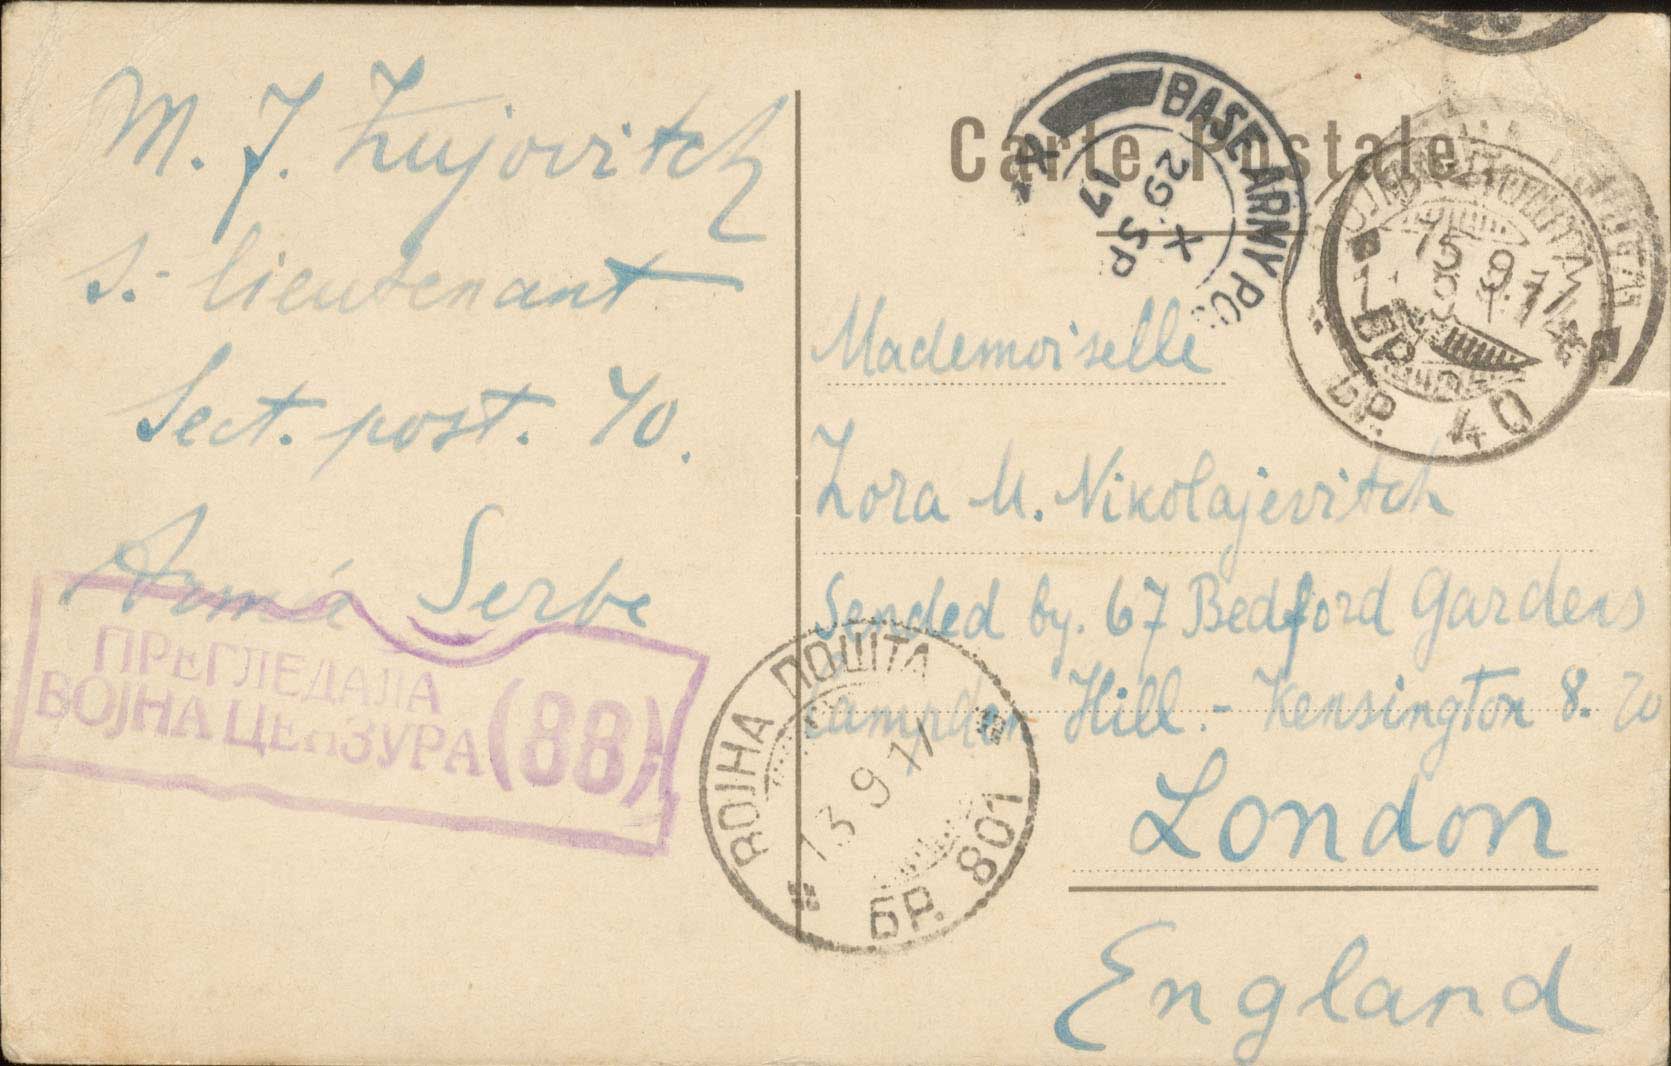 M. J. Zujovitch
s.-lieutenant
Sect. post. 70.
Armée Serbe
ПРЕГЛЕДАЛА
ВОЈНА ЦЕНЗУРА (88)
Carte Postale
BASE ARMY PO
X
29 SP
17
15 9 17
БР. 40
Mademoiselle
Zora M. Nikolajevitch
Sended by. 67 Bedford Gardens
Campden Hill. - Kensington 8.
London
England
ВОЈНА ПОШТА
13 9 17
БР. 801